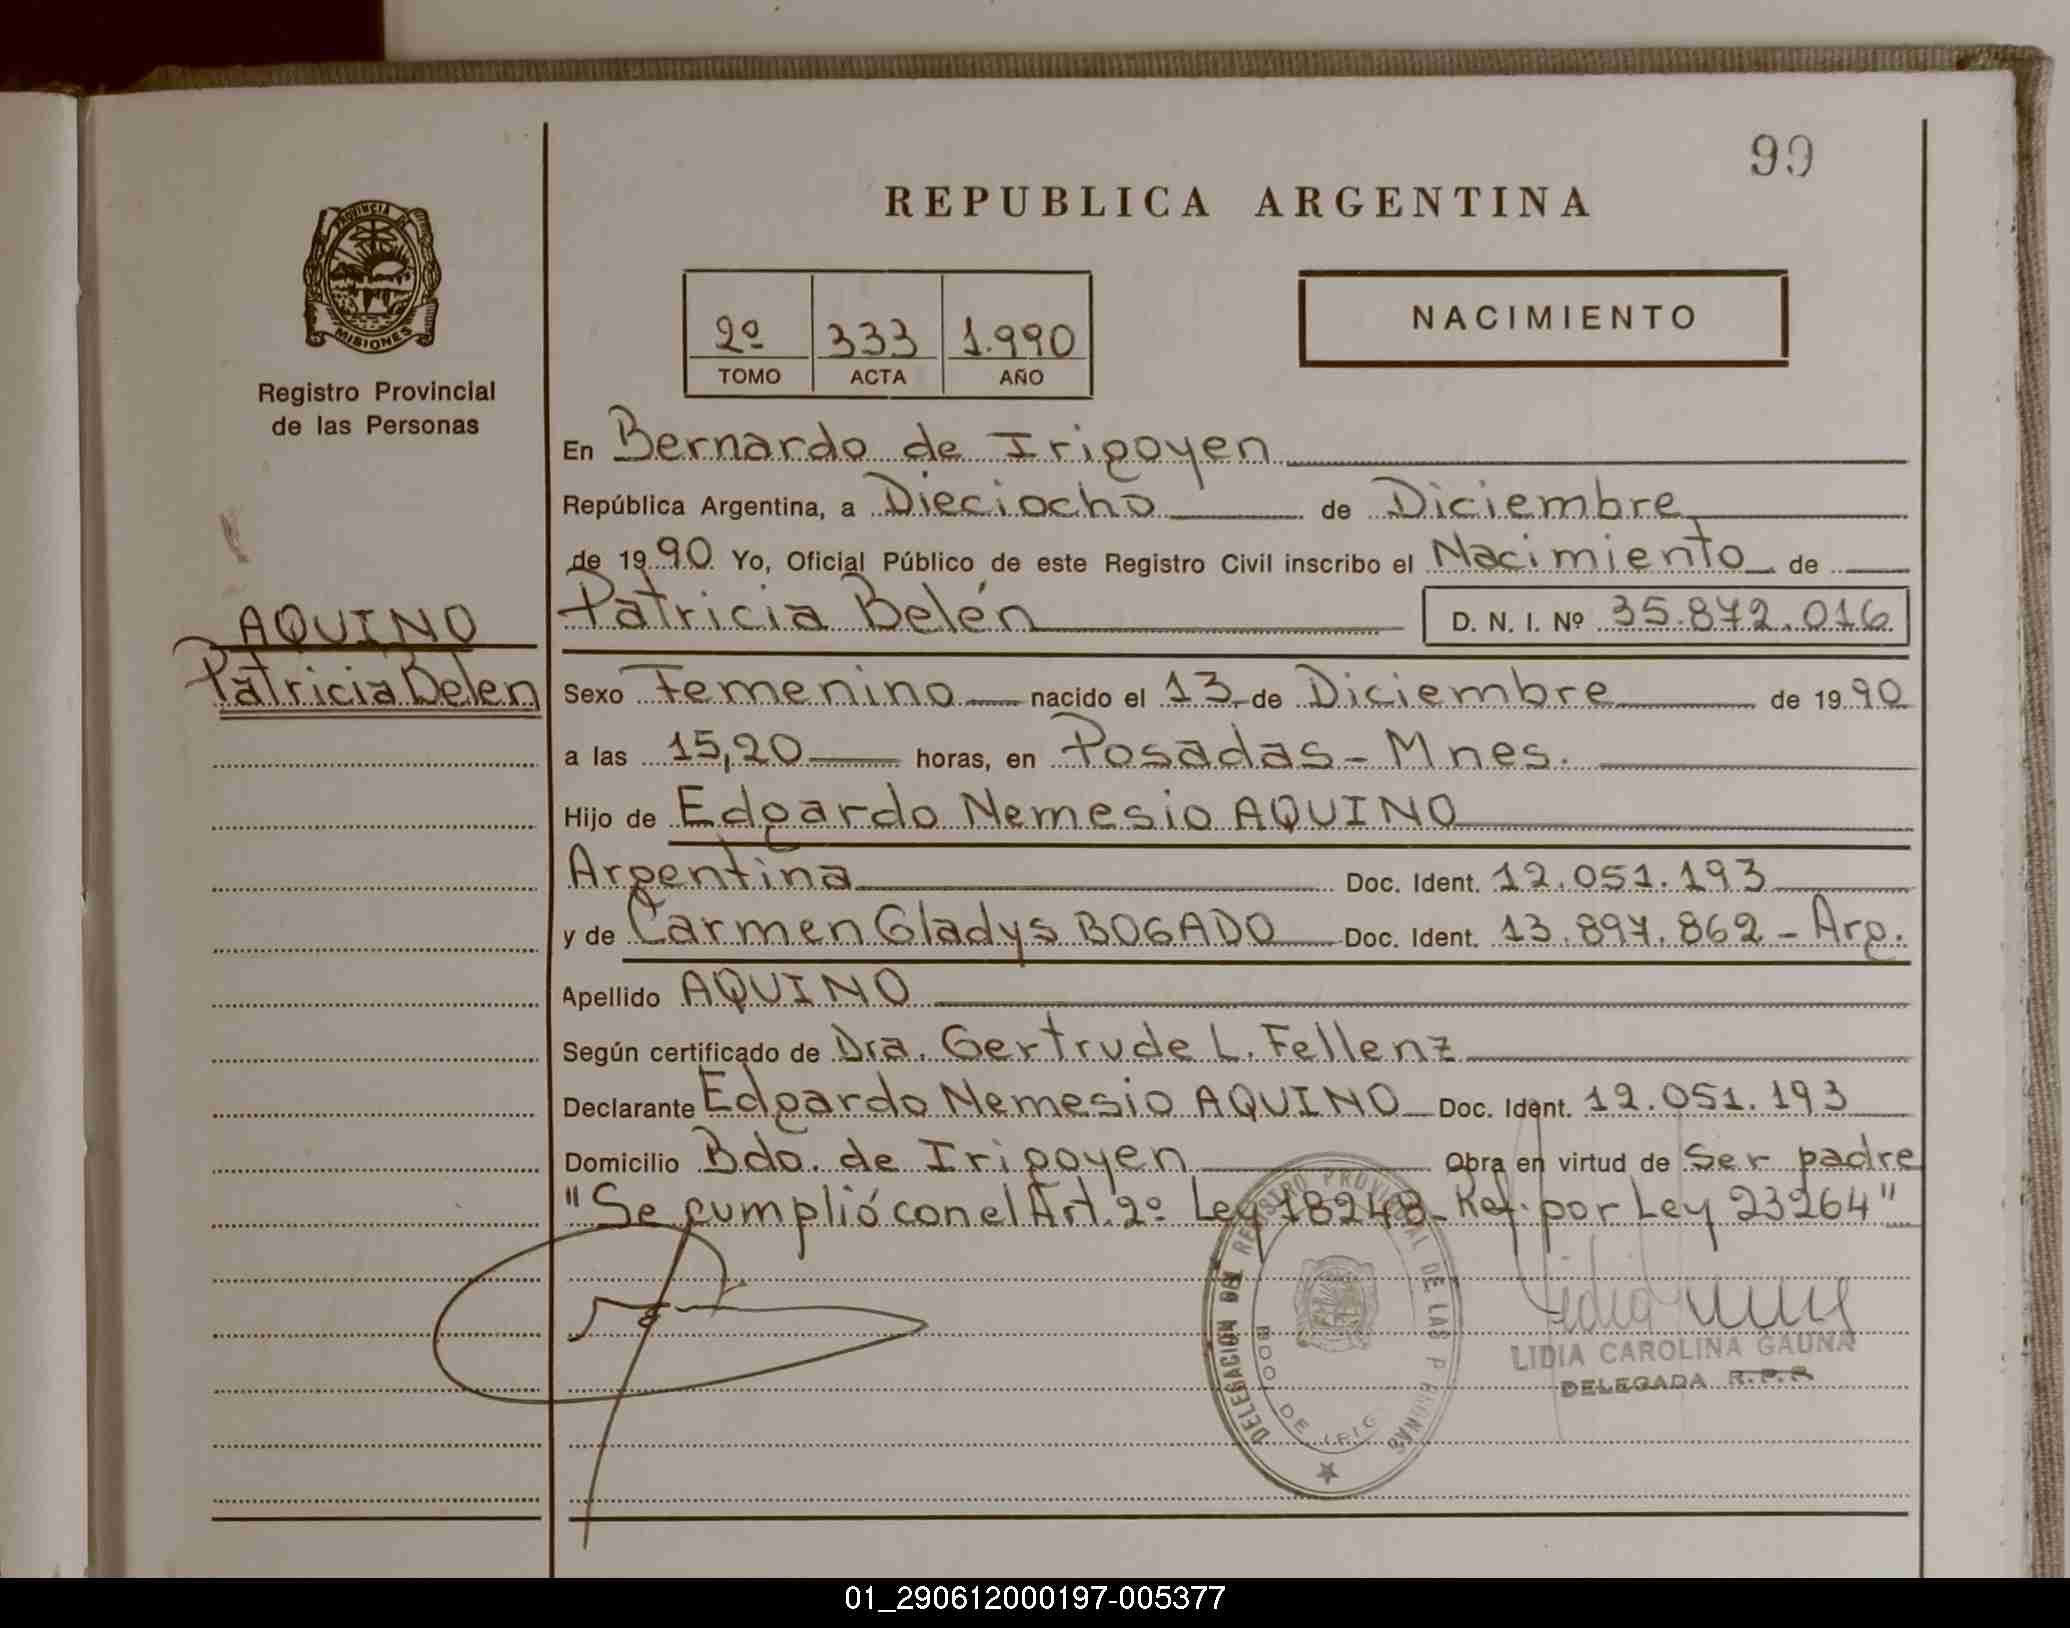 99
REPUBLICA ARGENTINA
PROVINCIA DE
MISIONES
Registro Provincial
de las Personas
2º 333 1.990
TOMO ACTA AÑO
NACIMIENTO
En Bernardo de Irigoyen
República Argentina, a Dieciocho de Diciembre
de 1990 Yo, Oficial Público de este Registro Civil inscribo el Nacimiento de
AQUINO
Patricia Belen
Patricia Belén D. N. I. Nº 35.872.016
Sexo Femenino nacido el 13 de Diciembre de 1990
a las 15,20 horas, en Posadas - Mnes.
Hijo de Edgardo Nemesio AQUINO
Argentina Doc. Ident. 12.051.193
y de Carmen Gladys BOGADO Doc. Ident. 13.897.862 - Arg.
Apellido AQUINO
Según certificado de Dra. Gertrude L. Fellenz
Declarante Edgardo Nemesio AQUINO Doc. Ident. 12.051.193
Domicilio Bdo. de Irigoyen Obra en virtud de Ser padre
"Se cumplió con el Art. 2º Ley 18248 - Ref. por Ley 23264"
DELEGACION DEL REGISTRO PROVINCIAL DE LAS P
BDO DE IRIG
LIDIA CAROLINA GAUNA
DELEGADA R.P.P
01_290612000197-005377